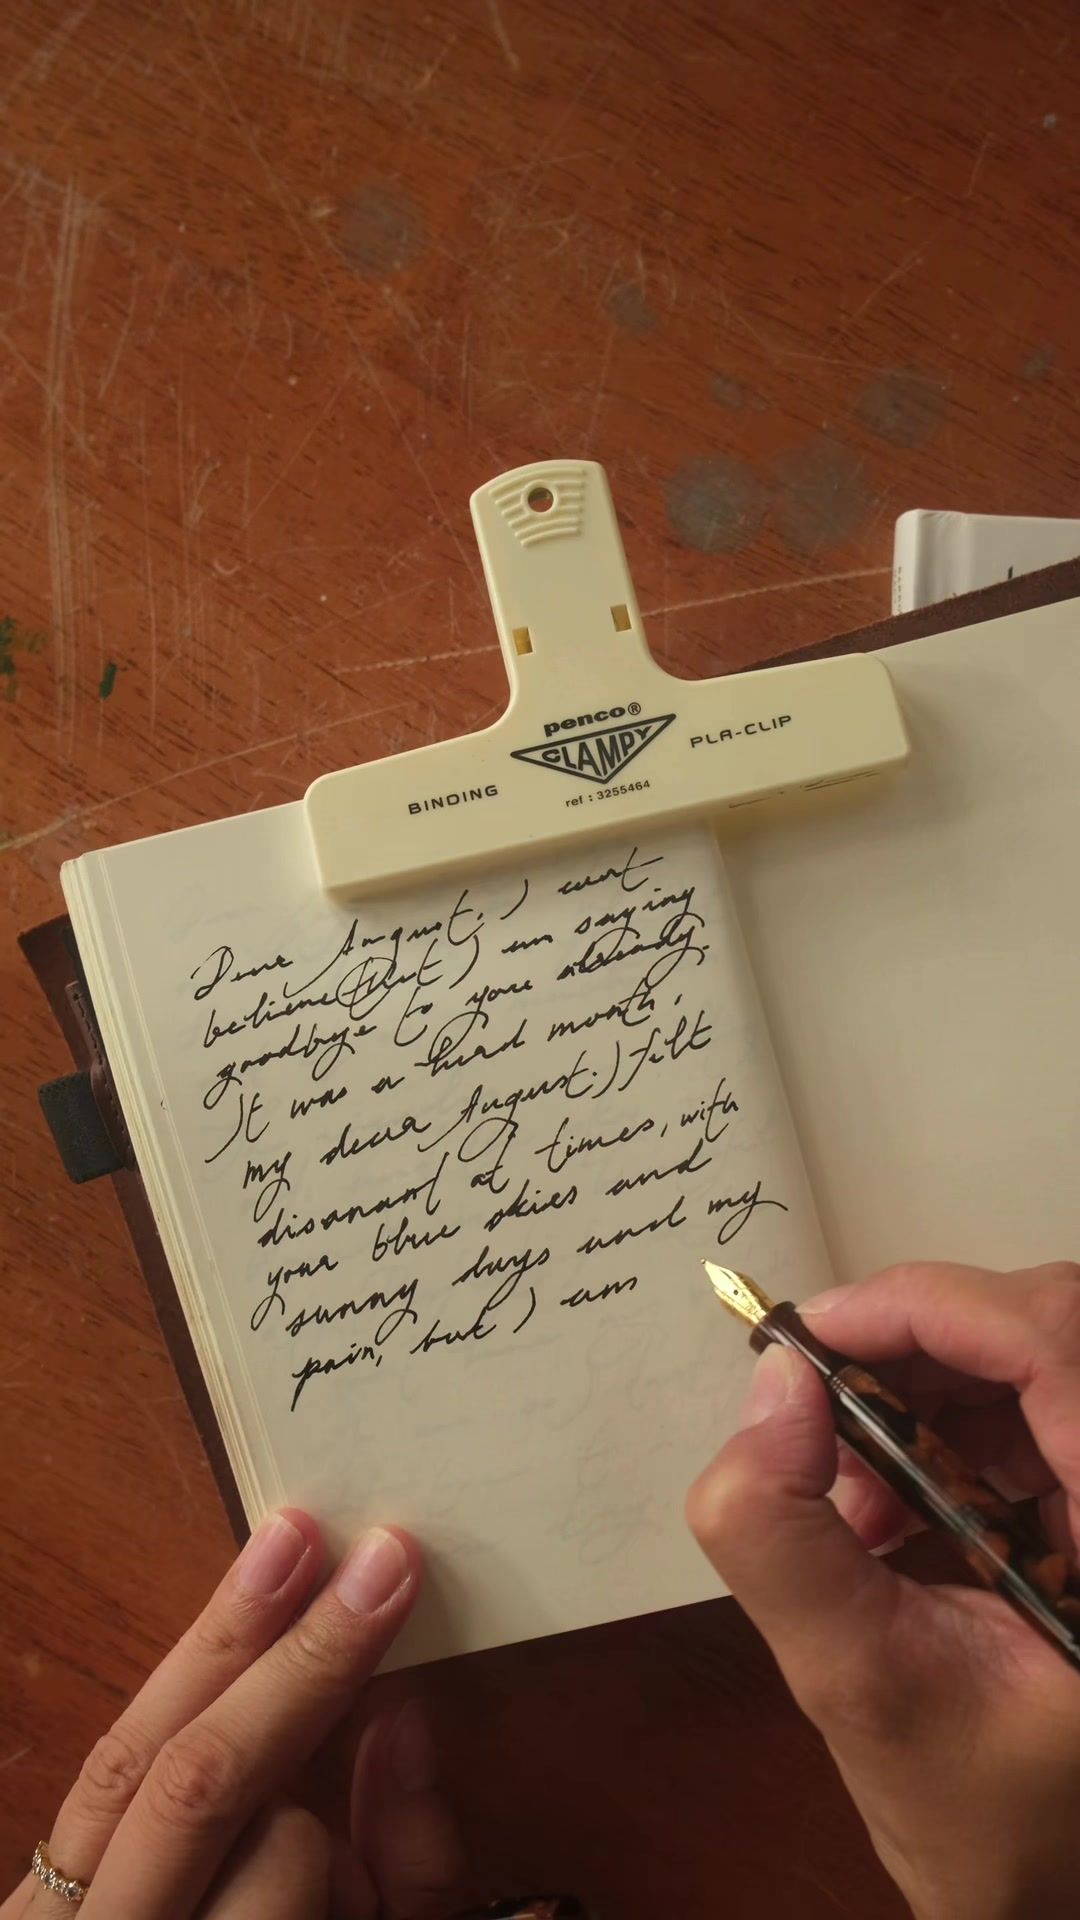 penco®
CLAMPY
BINDING
PLA-CLIP
ref : 3255464
Dear August, I cant
believe that I am saying
goodbye to you already.
It was a hard month,
my dear August. I felt
disonant at times, with
your blue skies and
sunny days and my
pain, but I am